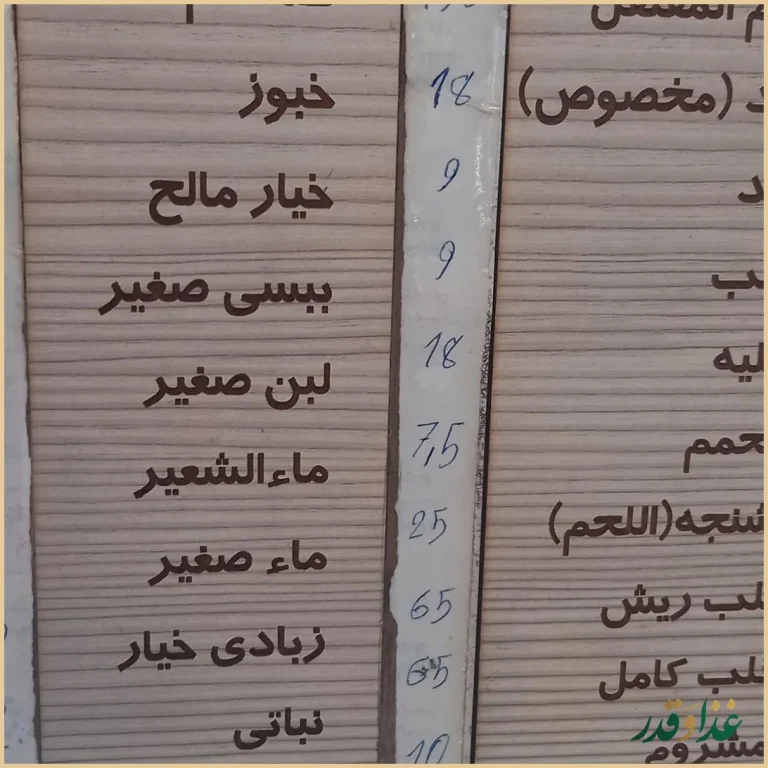 م المفصل
(مخصوص)
د
ب
ليه
حمم
شنجه(اللحم)
لب ريش
لب كامل
مشروم
18
9
9
18
7,5
25
65
65
10
خبوز
خيار مالح
ببسى صغير
لبن صغير
ماءالشعير
ماء صغير
زبادى خيار
نباتى
غذا و قدر